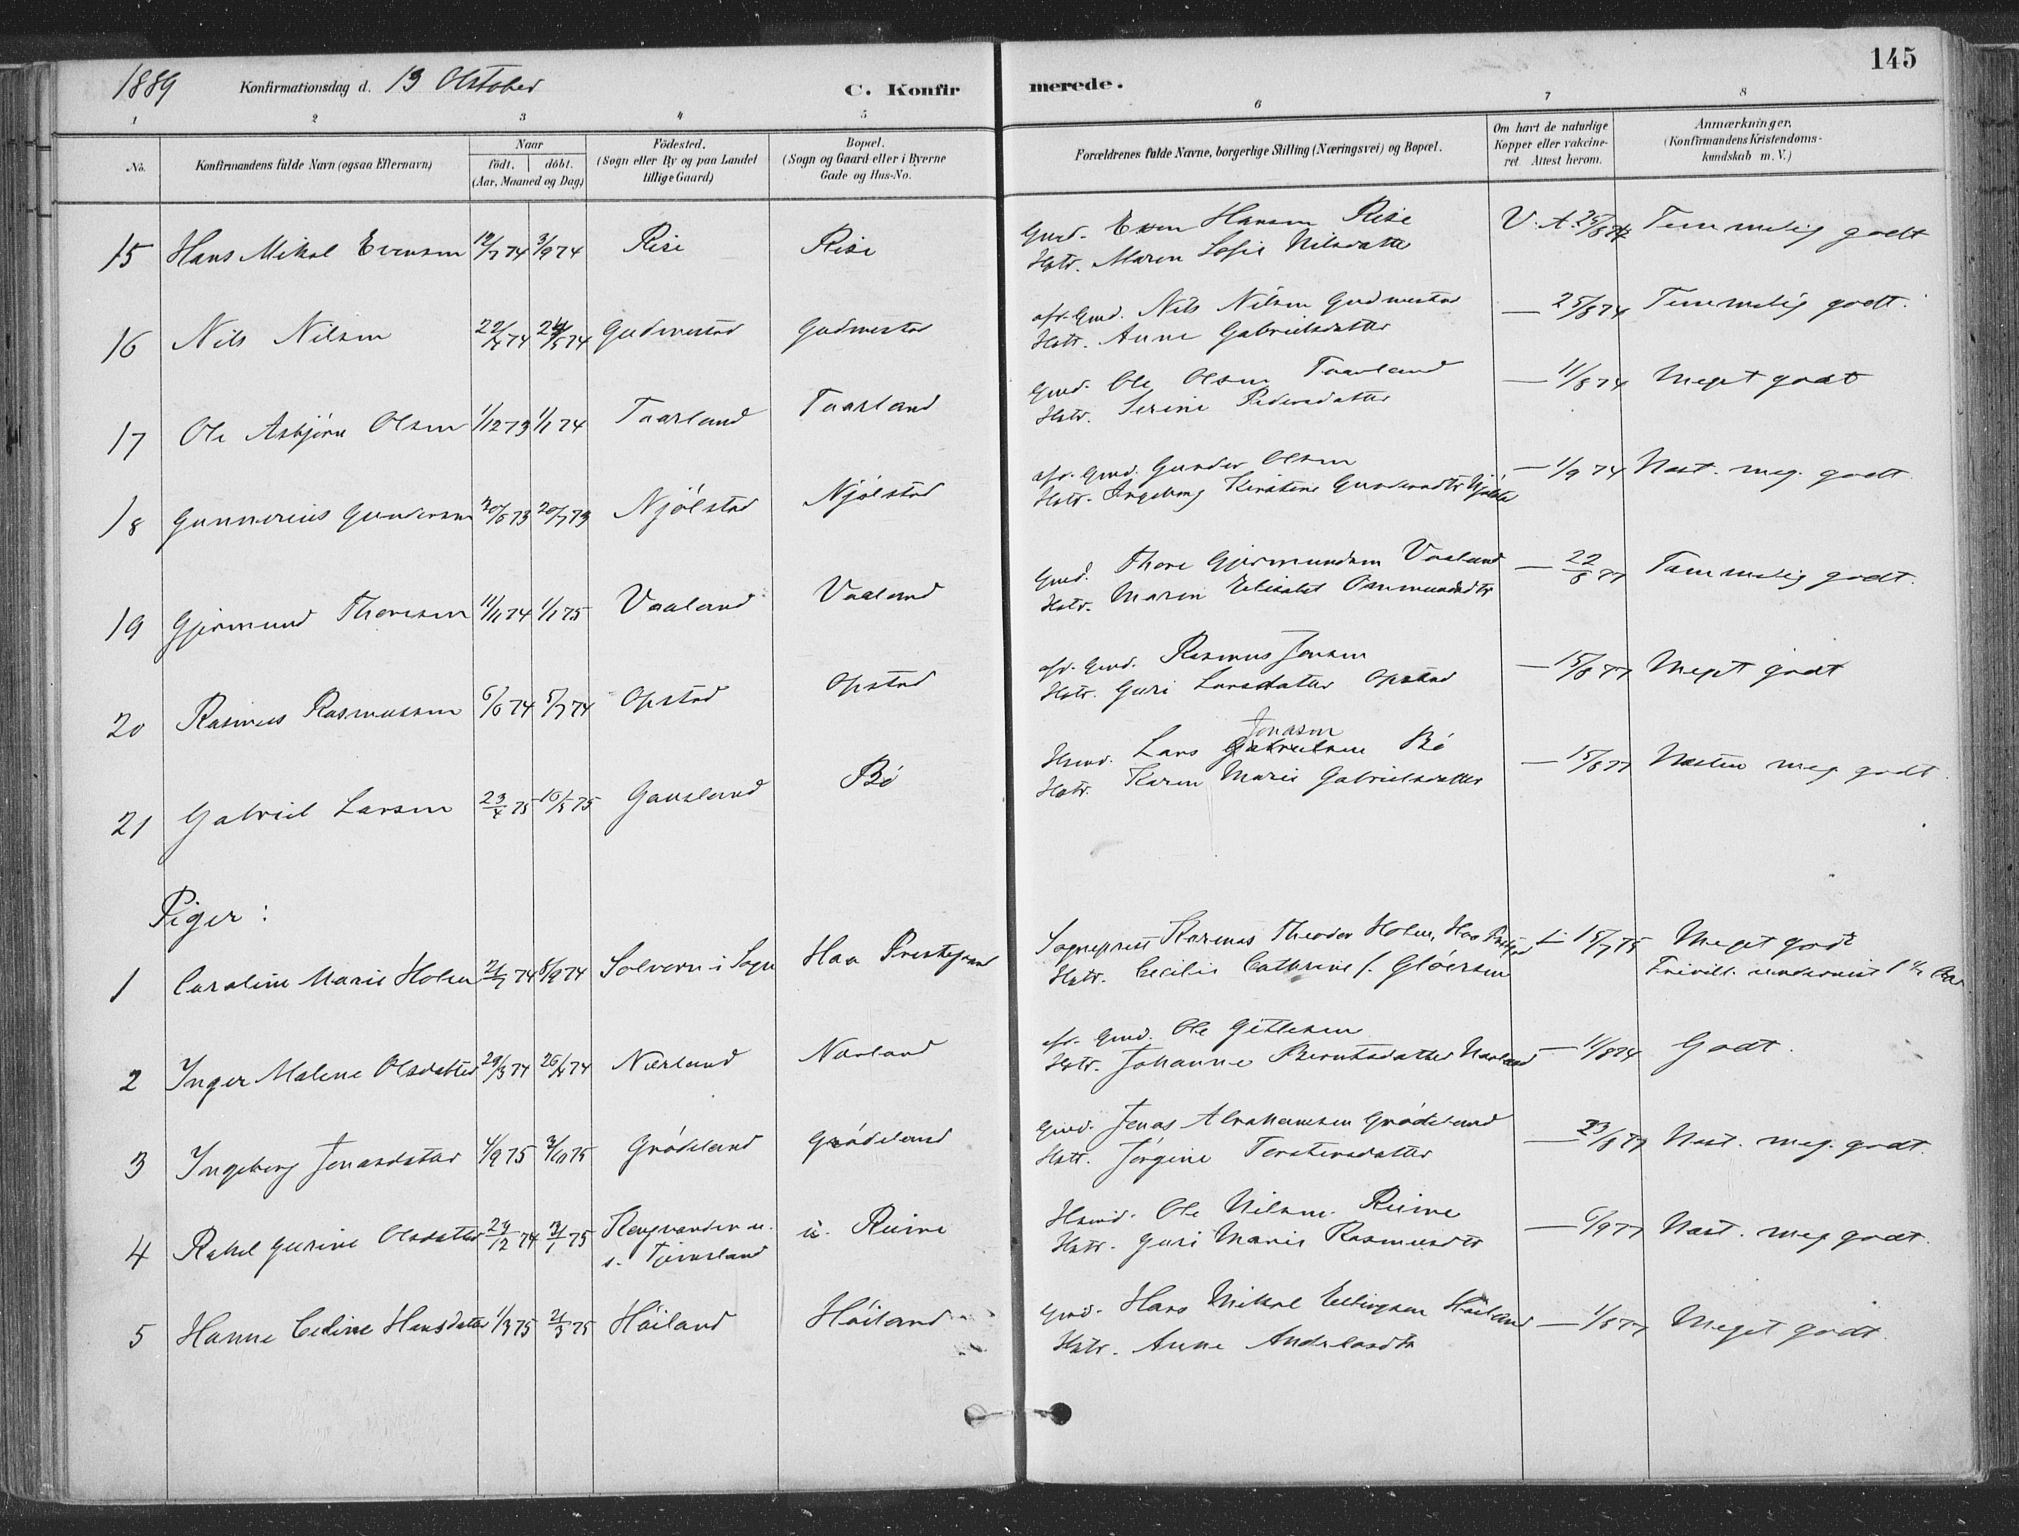 145
1889 Konfirmationsdag d. 13 Oktober C. Konfirmerede.
1 2 3 4 5 6 7 8
No. Konfirmandens fulde Navn (ogsaa Efternavn) Naar født. døbt. (Aar, Maaned og Dag) Fødested. (Sogn eller By og paa Landet tillige Gaard) Bopæl. (Sogn og Gaard eller i Byerne Gade og Hus-No. Forældrenes fulde Navne, borgerlige Stilling (Næringsvei) og Bopæl. Om havt de naturlige Kopper eller vakcineret. Attest herom. Anmærkninger. (Konfirmandens Kristendomskundskab m. V.)
15 Hans Mikal Evensen 12/7 74 3/9 74 Risè Risè Gmd. Even Hansen Risè V. A. 25/8 74 Temmelig godt
Hstr. Maren Sofie Nilsdatter
16 Nils Nilsen 22/4 74 24/5 74 Gudmestad Gudmestad afd. Gmd. Nils Nilsen Gudmestad — 25/8 74 Temmelig godt.
Hstr. Anne Gabrielsdatter
17 Ole Asbjørn Olsen 1/12 73 1/1 74 Taarland Taarland Gmd. Ole Olsen Taarland — 11/8 74 Meget godt
Hstr. Serine Pedersdatter
18 Gunnerius Gundersen 20/6 73 20/7 73 Njølstad Njølstad afd. Gmd. Gunder Olsen — 1/9 74 Næst. meg. godt
Hstr. Ingeborg Kirstine
19 Gjermund Thoresen 11/11 74 1/1 75 Vaaland Vaaland Gmd. Thore Gjermundsen Vaaland — 22/8 77 Temmelig godt.
Hstr. Maren Elisabet Osmundsdtr
20 Rasmus Rasmussen 6/6 74 5/7 74 Opstad Opstad afd. Gmd. Rasmus Jonsen — 15/8 77 Meget godt
Hstr. Guri Larsdatter Opstad
21 Gabriel Larsen 23/4 75 16/5 75 Gausland Bø Hsmd. Lars Jonasen Bø — 15/8 77 Næsten meg godt
Hstr. Karen Marie Gabrielsdatter
Piger:
1 Caroline Marie Holm 21/7 74 8/9 74 Solvorn i Sogn Haa Prestegaard Sogneprest Theodor Holm, Haa — 15/7 75 Meget godt
Hstr. Cecilie Cathrine f. Gløersen
2 Inger Malene Olsdatter 29/3 74 26/4 74 Nærland Nærland afd. Gmd. Ole Gitlesen — 11/8 74 Godt.
Hstr. Johanne Berntsdatter Nærland
3 Ingeborg Jonasdatter 4/9 75 3/10 75 Grødeland Grødeland Gmd. Jonas Abrahamsen Grødeland — 23/8 77 Næst. meg. godt.
Hstr. Jørgine Torstensdatter
4 Rakel Gurine Olsdatter 24/12 74 3/1 75 u. Reime Hsmd. Ole Nilsen Reime — 6/9 77 Næst. meg godt.
s. Tjemsland Hstr. Guri Marie Rasmusdtr
5 Hanne Celine Hansdatter 1/3 75 21/3 75 Høiland Høiland Gmd. Hans Mikal Ellingsen Høiland — 1/8 77 Meget godt.
Hstr. Anne Andreasdtr